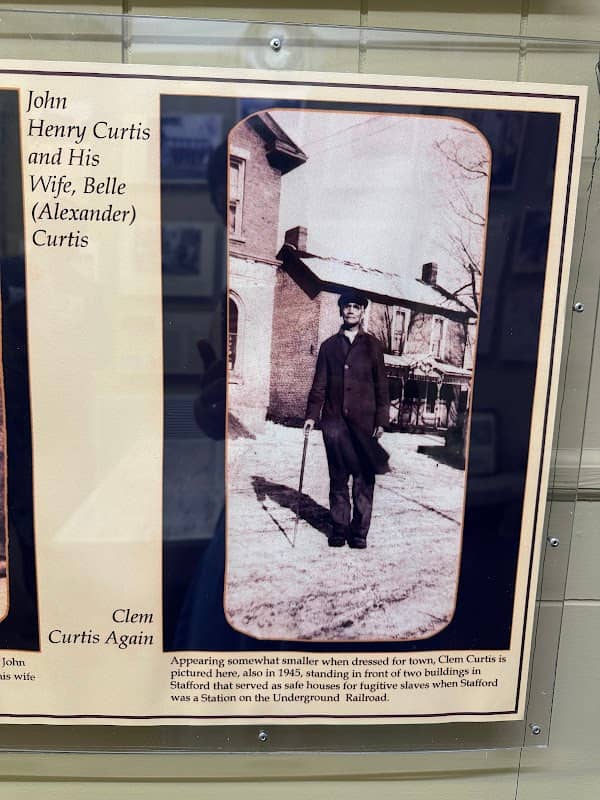 John
Henry Curtis
and His
Wife, Belle
(Alexander)
Curtis
Clem
Curtis Again
John
his wife
Appearing somewhat smaller when dressed for town, Clem Curtis is
pictured here, also in 1945, standing in front of two buildings in
Stafford that served as safe houses for fugitive slaves when Stafford
was a Station on the Underground Railroad.